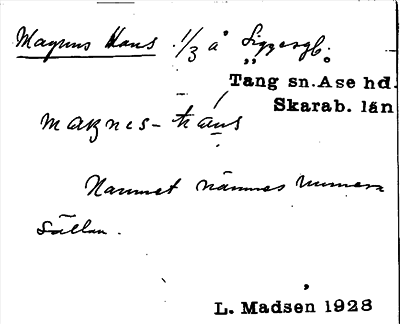 Magnus Hans 1/3 å Siggesgb.
Tang sn. Ase hd.
Skarab. län
magnes-hans
Namnet nämnes numera
sällan.
L. Madsen 1928